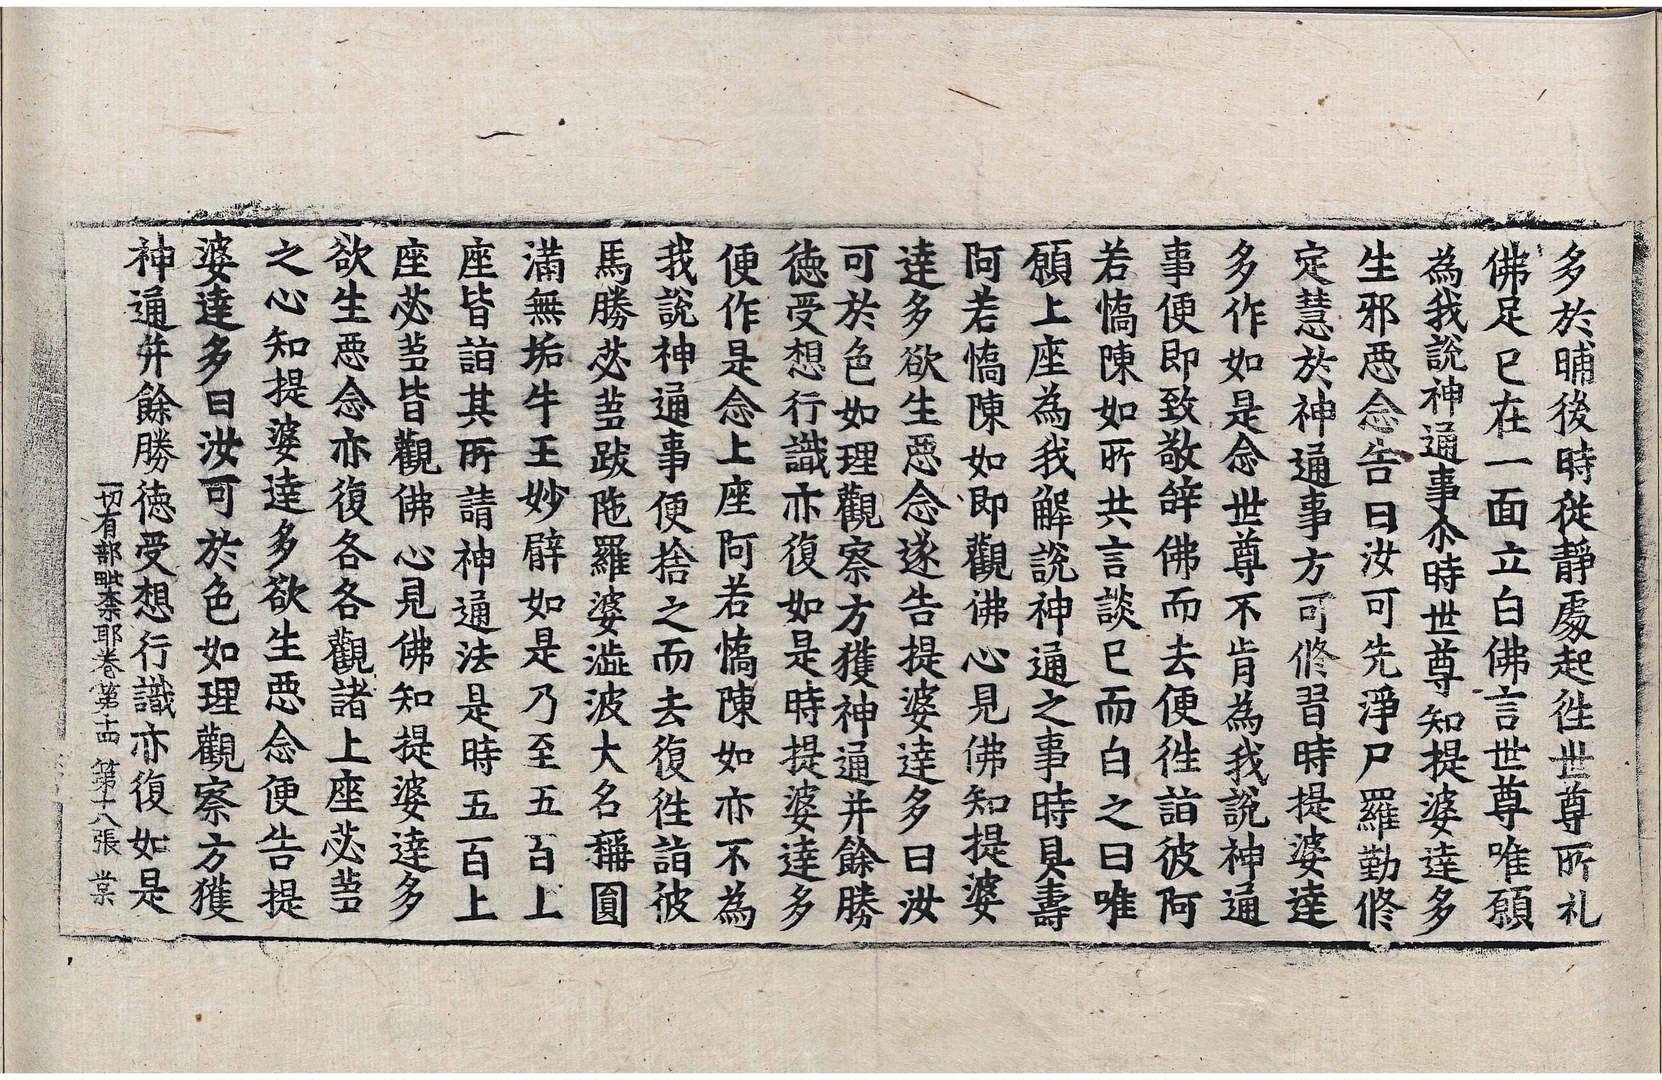 多於晡後時從靜處起徃世尊所礼
佛足已在一面立白佛言世尊唯願
為我説神通事尒時世尊知提婆達多
生邪惡念告曰汝可先淨尸羅勤修
定慧於神通事方可修習時提婆達
多作如是念世尊不肯為我説神通
事便即致敬辝佛而去便徃詣彼阿
若憍陳如所共言談已而白之曰唯
願上座為我解説神通之事時具壽
阿若憍陳如即觀佛心見佛知提婆
達多欲生惡念遂告提婆達多曰汝
可於色如理觀察方獲神通并餘勝
徳受想行識亦復如是時提婆達多
便作是念上座阿若憍陳如亦不為
我説神通事便捨之而去復徃詣彼
馬勝苾芻跋陁羅婆澁波大名稱圓
滿無垢牛王妙臂如是乃至五百上
座皆詣其所請神通法是時五百上
座苾芻皆觀佛心見佛知提婆達多
欲生惡念亦復各各觀諸上座苾芻
之心知提婆達多欲生惡念便告提
婆達多曰汝可於色如理觀察方獲
神通并餘勝徳受想行識亦復如是
一切有部毗奈耶卷第十四 第十八張 棠